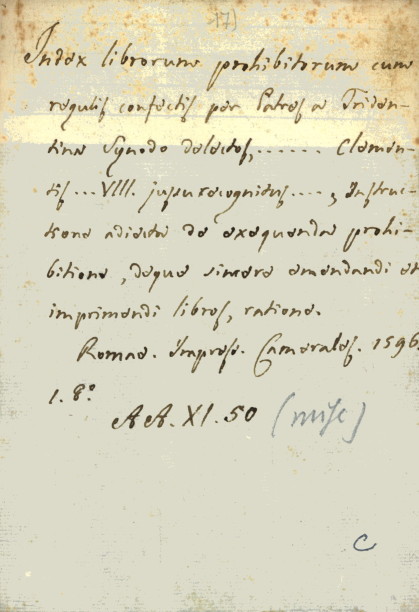 17)
Index librorum prohibitorum cum
regulis confectis per Patres a Triden-
tina Synodo delectos, ...... Clemen-
tis ... VIII. jussu recognitus ...., Instruc-
tione adiecta de exequenda prohi-
bitione, deque sincere emendandi et
imprimendi libros, ratione.
Romae. Impress. Camerales. 1596.
1. 8º
AA. XI. 50 (misc)
C